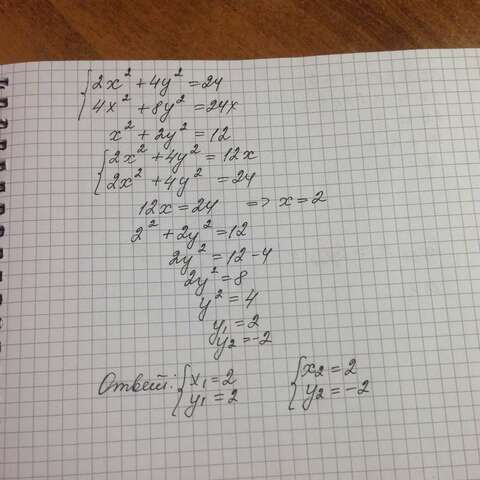 {2x² + 4y² = 24
{4x² + 8y² = 24x
x² + 2y² = 12
{2x² + 4y² = 12x
{2x² + 4y² = 24
12x = 24 => x = 2
2² + 2y² = 12
2y² = 12 - 4
2y² = 8
y² = 4
y₁ = 2
y₂ = -2
Ответ: {x₁ = 2 {x₂ = 2
{y₁ = 2 {y₂ = -2